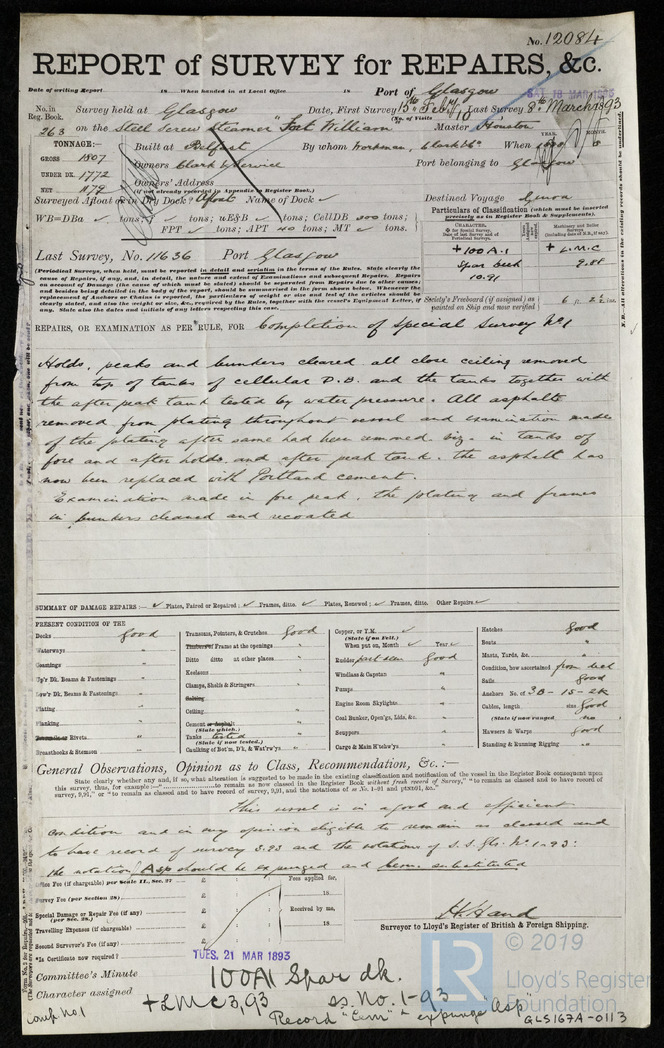 No. 12084
REPORT of SURVEY for REPAIRS, &c.
Date of writing Report 18 When handed in at Local Office 18 Port of Glasgow
SAT. 18 MAR 1893
No. in Reg. Book. Survey held at Glasgow Date, First Survey 15th Feb Last Survey 8th March 1893
(No. of Visits 10)
263 on the Steel Screw Steamer "Fort William" Master Houston
TONNAGE:— Built at Belfast By whom Workman, Clark & Co When YEAR. MONTH.
GROSS 1807 Owners Port belonging to Glasgow
UNDER DK. 1772 Owners' Address
(if not already recorded in Appendix to Register Book.)
NET 1179
Surveyed Afloat or in Dry Dock? Afloat Name of Dock Destined Voyage
WB=DBa tons; f tons; uE&B tons; CellDB 300 tons;
FPT tons; APT 40 tons; MT tons.
Particulars of Classification (which must be inserted precisely as in Register Book & Supplements).
Last Survey, No. 11636 Port Glasgow
+ 100 A.1
Spar deck
10.91
+ L.M.C
9.88
(Periodical Surveys, when held, must be reported in detail and seriatim in the terms of the Rules. State clearly the cause of Repairs, if any, and, in detail, the nature and extent of Examinations and subsequent Repairs. Repairs on account of Damage (the cause of which must be stated) should be separated from Repairs due to other causes; and besides being detailed in the body of the report, should be summarised in the form shown below. Whenever the replacement of Anchors or Chains is reported, the particulars of weight or size and test of the articles should be clearly stated, and also the weight or size, &c., required by the Rules, together with the vessel's Equipment Letter, if any. State also the dates and initials of any letters respecting this case.
Society's Freeboard (if assigned) as painted on Ship and now verified 6 ft. 2½ ins.
N.B.—All alterations in the existing records should be underlined.
REPAIRS, OR EXAMINATION AS PER RULE, FOR Completion of Special Survey No 1
Holds, peaks and bunkers cleared all close ceiling removed
from top of tanks of cellular D.B. and the tanks together with
the after peak tank tested by water pressure. All asphalte
removed from plating throughout vessel and examination made
of the plating after same had been removed. viz. in tanks of
fore and after holds, and after peak tank. the asphalt has
now been replaced with Portland cement.
Examination made in fore peak, the plating and frames
in bunkers cleaned and recoated
SUMMARY OF DAMAGE REPAIRS:— Plates, Faired or Repaired; Frames, ditto. Plates, Renewed; Frames, ditto. Other Repairs.
PRESENT CONDITION OF THE
Decks Good
Waterways "
Coamings "
Up'r Dk. Beams & Fastenings "
Low'r Dk. Beams & Fastenings "
Plating "
Planking
Rivets "
Breasthooks & Stemson "
Transoms, Pointers, & Crutches Good
Timbers or Frames at the openings "
Ditto ditto at other places "
Keelsons "
Clamps, Shelfs & Stringers "
Salting
Ceiling "
Cement or Asphalt "
(State which.)
Tanks tested
(State if now tested.)
Caulking of Bot'm, D'k, & Wat'rw'ys "
Copper, or Y.M.
(State if on Felt.)
When put on, Month Year
Rudder part seen Good
Windlass & Capstan "
Pumps "
Engine Room Skylights "
Coal Bunker, Open'gs, Lids, &c. "
Scuppers "
Cargo & Main H'tchw'ys "
Hatches Good
Boats "
Masts, Yards, &c. "
Condition, how ascertained from deck
Sails Good
Anchors No. of 3B-1S-2K
Cables, length size Good
(State if now ranged) no
Hawsers & Warps Good
Standing & Running Rigging "
General Observations, Opinion as to Class, Recommendation, &c.:—
State clearly whether any, and if so, what alteration is suggested to be made in the existing classification and notification of the vessel in the Register Book consequent upon this survey, thus, for example:—"to remain as now classed in the Register Book without fresh record of Survey," "to remain as classed and to have record of survey, 9,91," or "to remain as classed and to have record of survey, 9,91, and the notations of ss No. 1–91 and ptND91, &c."
This vessel is in a good and efficient
condition and in my opinion eligible to remain as classed and
to have record of survey 3.93 and the notations of S.S. Gls. No 1-93:
the notation Asp should be expunged and Cem. substituted
Office Fee (if chargeable) per Scale II., Sec. 27 £ : : Fees applied for,
Survey Fee (per Section 28) £ : : 18
Special Damage or Repair Fee (if any) £ : : Received by me,
(per Sec. 28.)
Travelling Expenses (if chargeable) £ : : 18
Second Surveyor's Fee (if any) £ : :
H. Hand
Surveyor to Lloyd's Register of British & Foreign Shipping.
*Is Certificate now required?
TUES. 21 MAR 1893
Committee's Minute
Character assigned 100A1 Spar dk.
+ LMC 3,93 ss. No. 1-93
Record "Cem" & expunge "Asp"
LR © 2019
Lloyd's Register
Foundation
GLS167A-0113